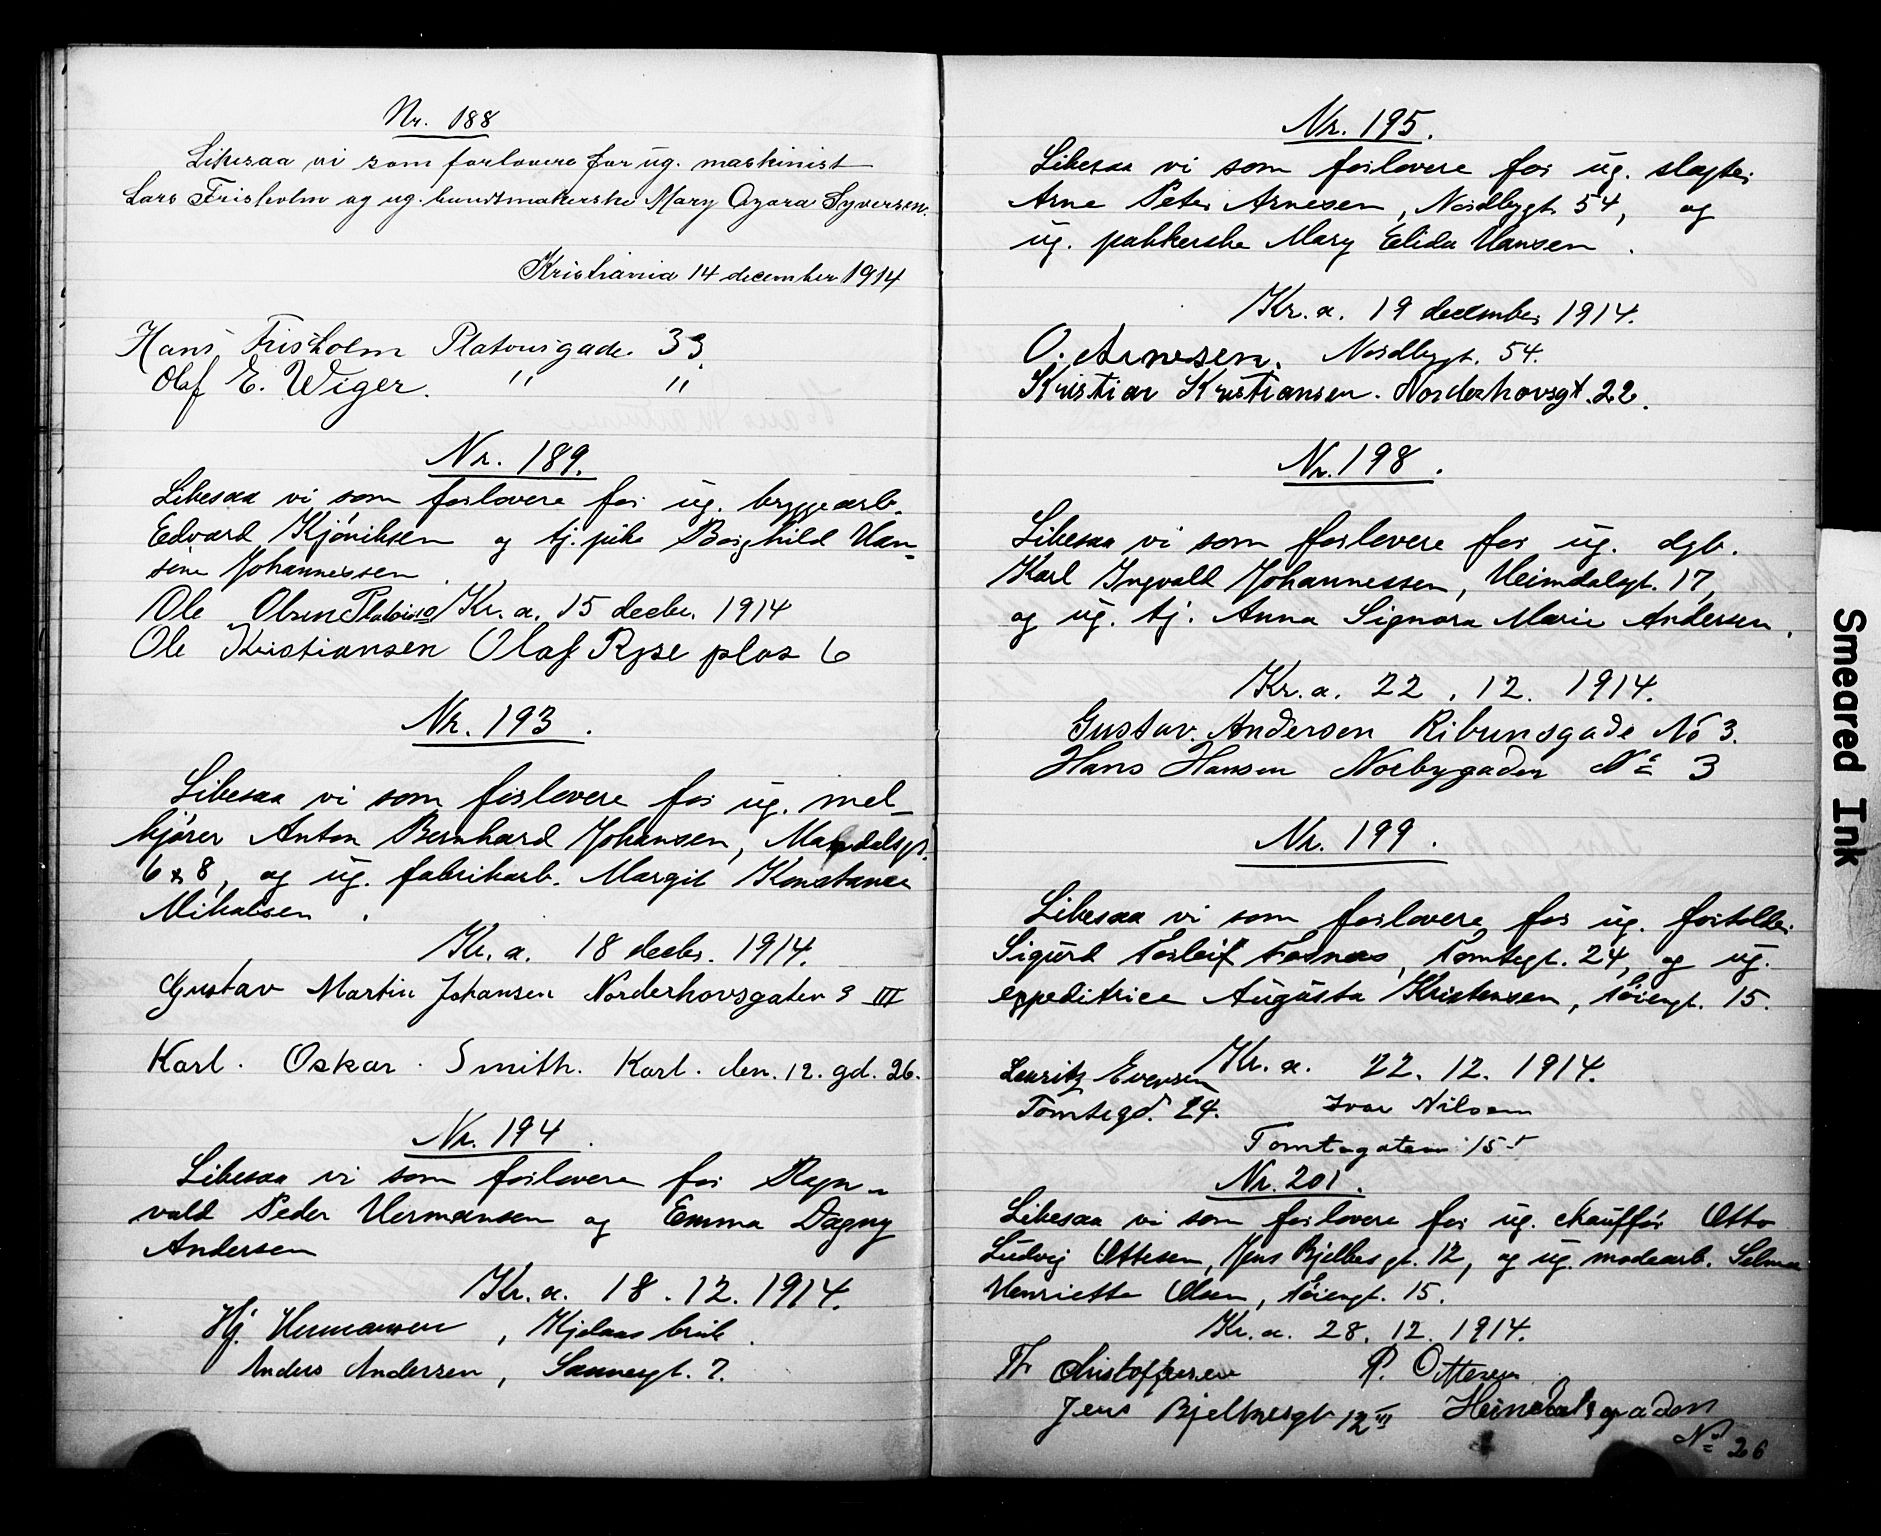 Nr. 188
Likesaa vi som forlovere for ug. maskinist
Lars Frisholm og ug. buntmakerske Mary Azora Syversen.
Kristiania 14 december 1914
Hans Frisholm Platousgade. 33.
Olaf E. Wiger. " "
Nr. 189.
Likesaa vi som forlovere for ug. bryggearb.
Edvard Kjöniksen og tj. pike Borghild Han-
sine Johannessen.
Ole Olsen Kr.a. 15 decbr. 1914
Ole Kristiansen Olaf Ryse plas 6
Nr. 193.
Likesaa vi som forlovere for ug. mel-
kjører Anton Bernhard Johansen, Mandalsgt.
6 & 8, og ug. fabrikarb. Margit Konstance
Mikalsen.
Kr.a. 18 decbr. 1914.
Gustav Martin Johansen Norderhovsgaten 9 III
Karl. Oskar. Smith. Karl. den. 12. gd. 26.
Nr. 194.
Likesaa vi som forlovere for Ragn-
vald Peder Hermansen og Emma Dagny
Andersen
Kr.a. 18.12.1914.
Hj. Hermansen, Kjelsaas bruk.
Anders Andersen, Sannergt. 7.
Nr. 195.
Likesaa vi som forlovere for ug. slagter
Arne Peter Arnesen, Nordbygt. 54, og
ug. pakkerske Mary Elida Hansen.
Kr.a. 19 december 1914.
O. Arnesen. Nordbygt. 54.
Kristian Kristiansen. Norderhovsgt. 22.
Nr. 198.
Likesaa vi som forlovere for ug. dgb.
Karl Ingvald Johannessen, Heimdalsgt. 17,
og ug. tj. Anna Signora Marie Andersen.
Kr.a. 22.12.1914.
Gustav. Andersen Ribunsgade No 3.
Hans Hansen Norbygaden No 3
Nr. 199.
Likesaa vi som forlovere for ug. fortolker
Sigurd Torleif Fosnæs, Tomtegt. 24, og ug.
expeditrice Augusta Kristensen, Töiengt. 15.
Kr.a. 22.12.1914.
Lauritz Evensen
Tomtegd. 24. Ivar Nilsen
Tomtegaten 15
Nr. 201.
Likesaa vi som forlovere for ug. chauffør Otto
Ludvig Ottesen, Jens Bjelkes gt. 12, og ug. modearb. Selma
Henriette Olsen, Töiengt. 15.
Kr.a. 28.12.1914.
Th Christoffersen P. Ottesen
Jens Bjelkesgt 12 III Heimdalsgaden
No 26
Smeared Ink